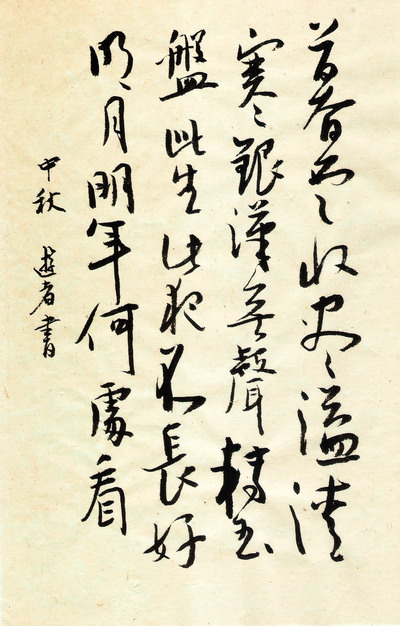 暮雲收盡溢清
寒銀漢無聲轉玉
盤此生此夜不長好
明月明年何處看
中秋 遊者書